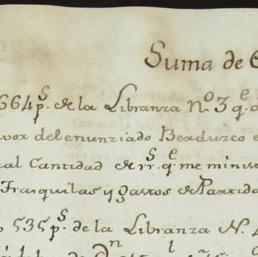 Suma de
664 p.s de la Libranza n.o 3 q.e
vor del enunziado Berdurco e
al Cantidad de rr.s q.e me minis
Trasquilas y gastos de Partido
535 p.s de la Libranza N.